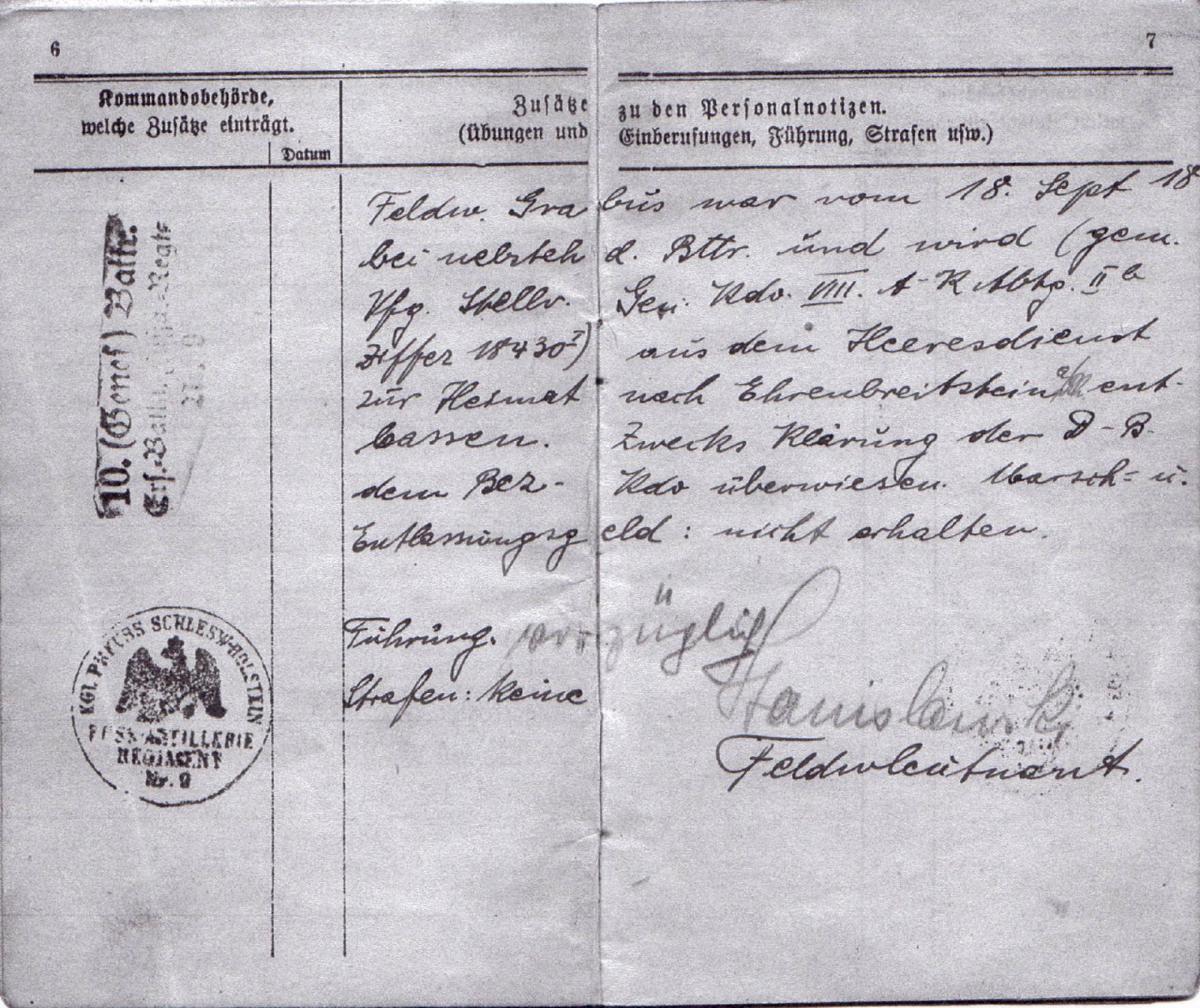 6
7
Kommandobehörde,
welche Zusätze einträgt.
Datum
Zusätze zu den Personalnotizen.
(Übungen und Einberufungen, Führung, Strafen usw.)
10. (Genes) Battr.
Ers.-Batln. Regts
Feldw. Grabus war vom 18. Sept 18
bei nebsteh d. Bttr. und wird (gem.
Vfg. Stellv. Gen. Kdo. VIII. A-K Abtg. II b
Ziffer 18430 I) aus dem Heeresdienst
zur Heimat nach Ehrenbreitstein ent-
lassen. Zwecks Klärung der D-B
dem Bez- Kdo überwiesen. Marsch= u.
Entlassungsgeld: nicht erhalten.
Führung. vorzüglich
Strafen: keine
Stanislawski
Feldwleutnant.
KGL. PREUSS SCHLESW-HOLSTEIN
FUSSARTILLERIE
REGIMENT
Nr. 9